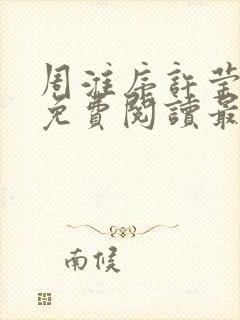 周淮序許莹
免費閱讀最
南候